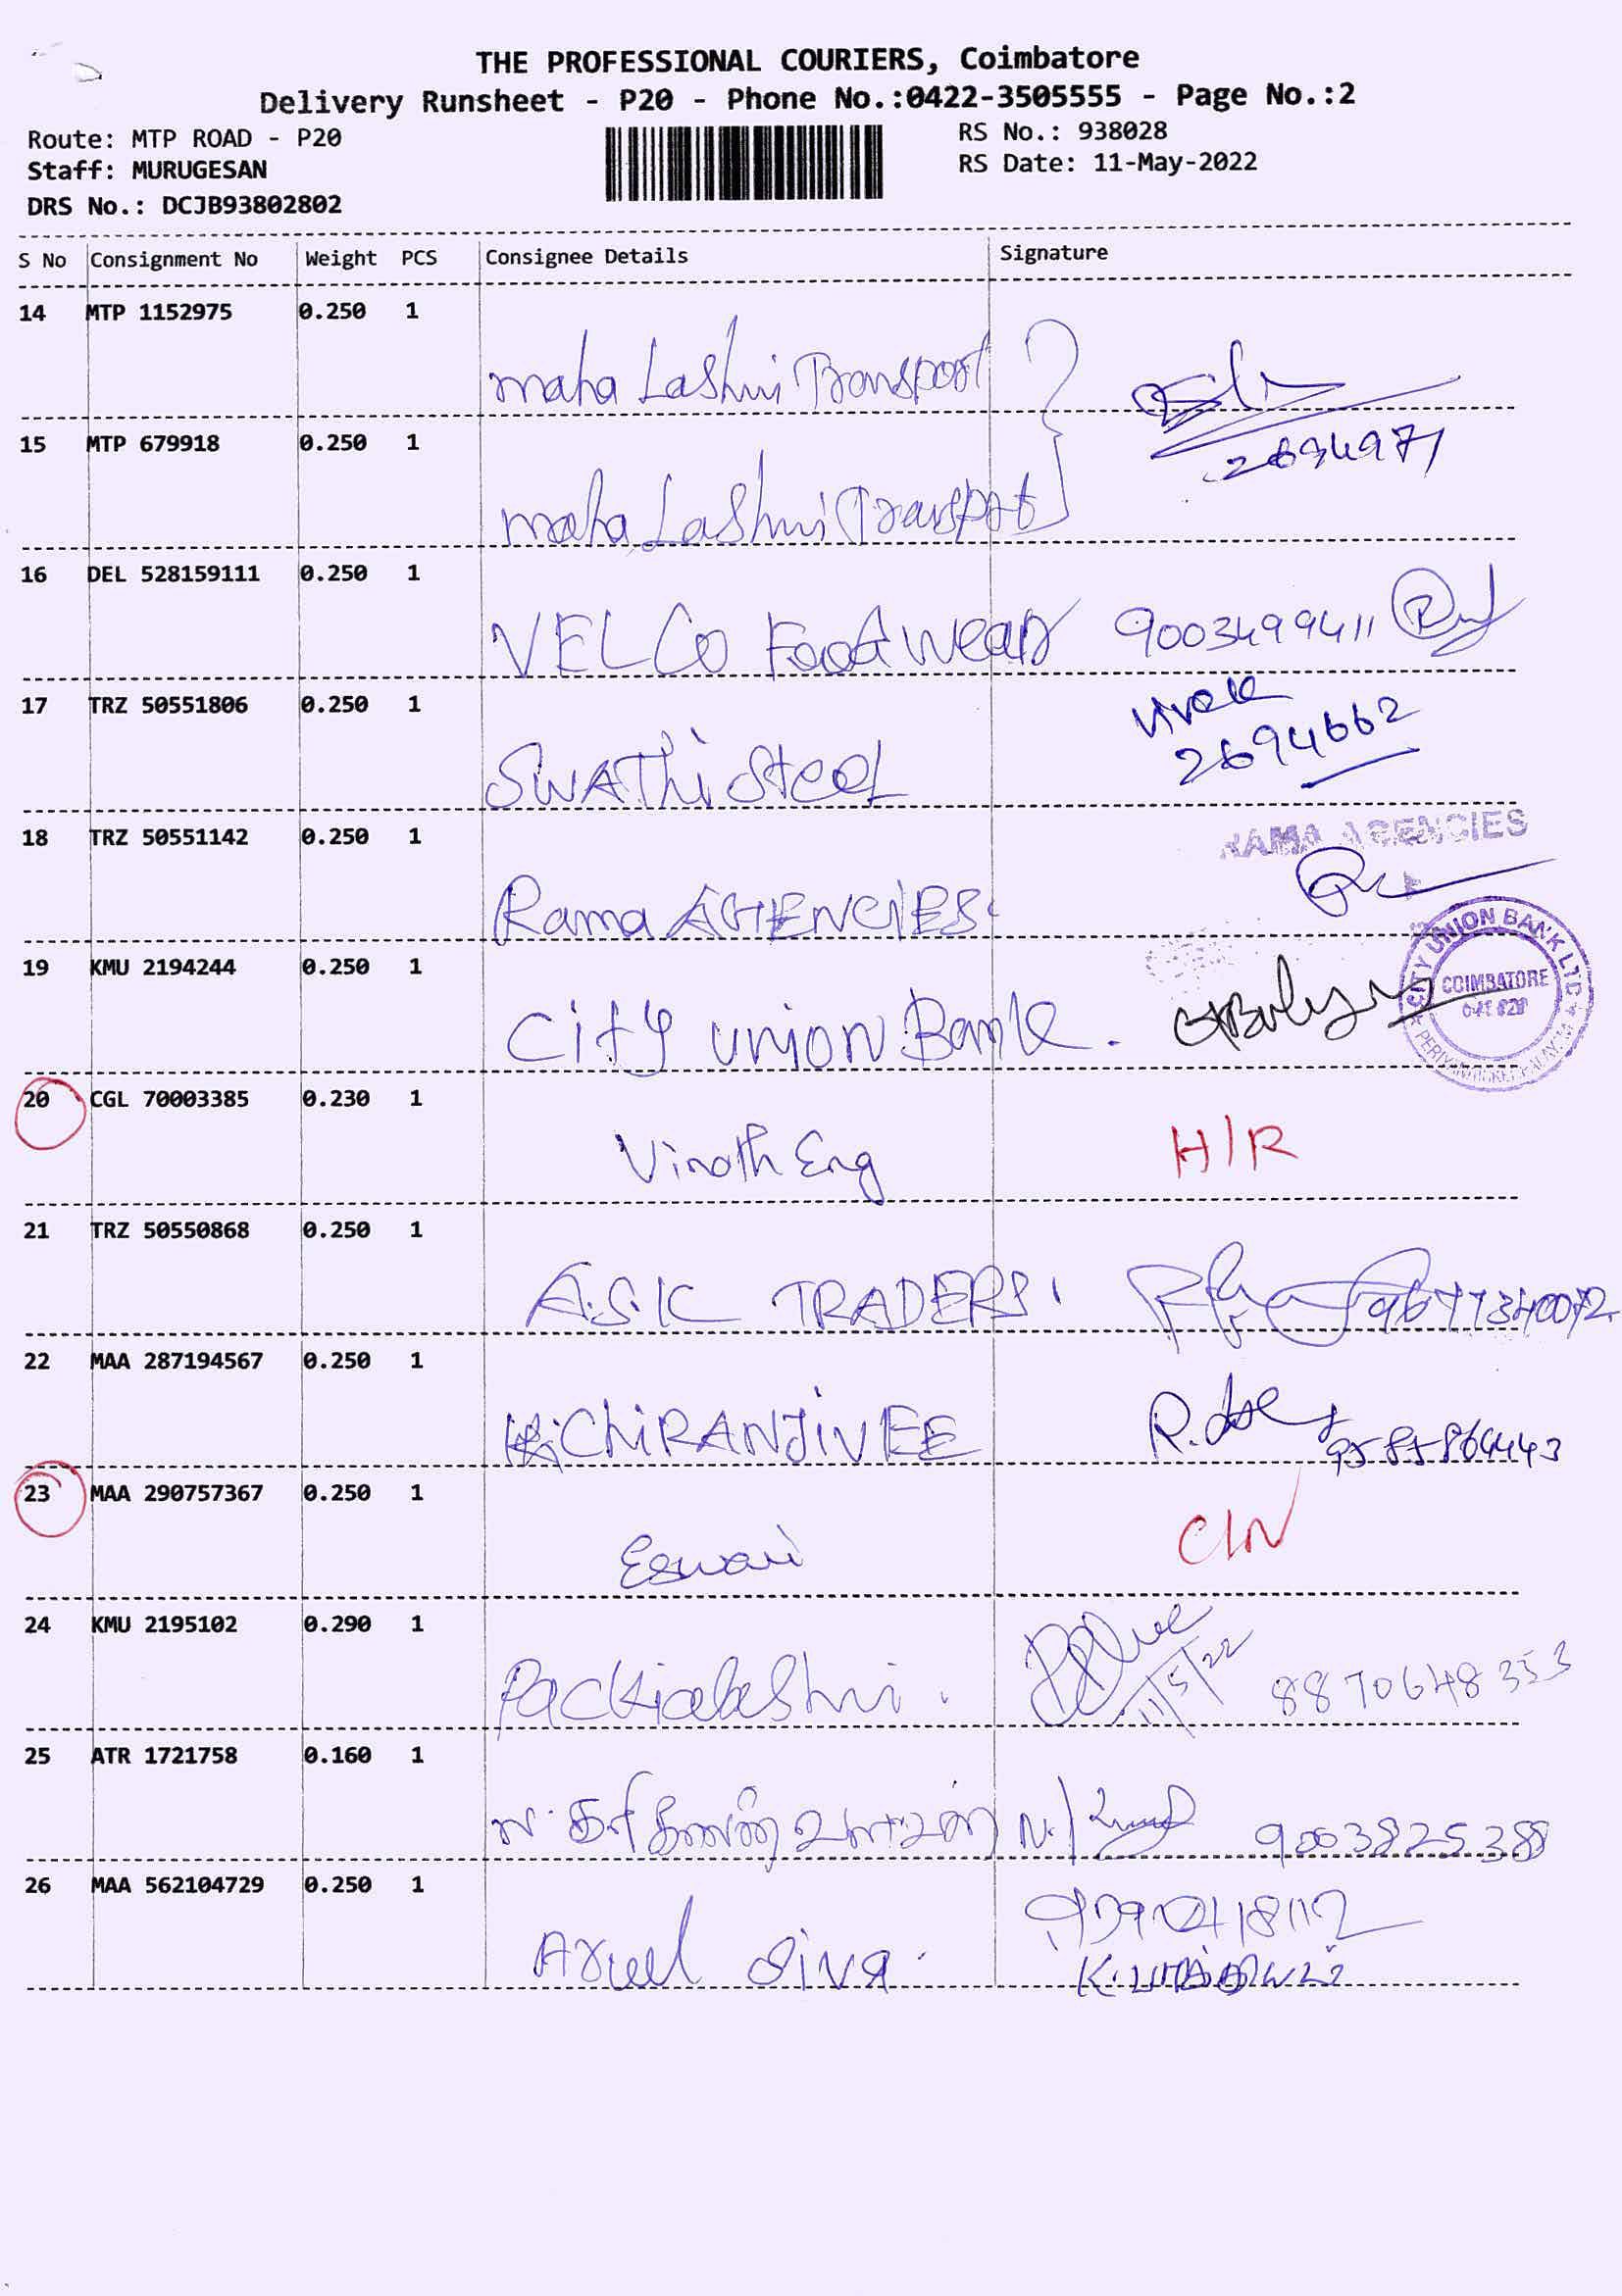 THE PROFESSIONAL COURIERS, Coimbatore
Delivery Runsheet - P20 - Phone No.:0422-3505555 - Page No.:2
Route: MTP ROAD - P20
RS No.: 938028
Staff: MURUGESAN
RS Date: 11-May-2022
DRS No.: DCJB93802802
S No Consignment No Weight PCS Consignee Details Signature
14 MTP 1152975 0.250 1
maha Lashmi Transport
15 MTP 679918 0.250 1
2694971
maha Lashmi Transport
16 DEL 528159111 0.250 1
VELCO Footwear 9003499411
17 TRZ 50551806 0.250 1
Vivek
2694662
SWAThi Steel
18 TRZ 50551142 0.250 1
RAMA AGENCIES
Rama AGENCIES
19 KMU 2194244 0.250 1
CITY UNION BANK LTD
COIMBATORE
City union Bank.
20 CGL 70003385 0.230 1
Vinoth Eng H/R
21 TRZ 50550868 0.250 1
A.S.K TRADERS. 9677340072
22 MAA 287194567 0.250 1
ChiRANJiVEE
9585864443
23 MAA 290757367 0.250 1
Eswari C/N
24 KMU 2195102 0.290 1
Packialashmi. 11/5/22 8870648353
25 ATR 1721758 0.160 1
9003825388
26 MAA 562104729 0.250 1
Arul Siva.